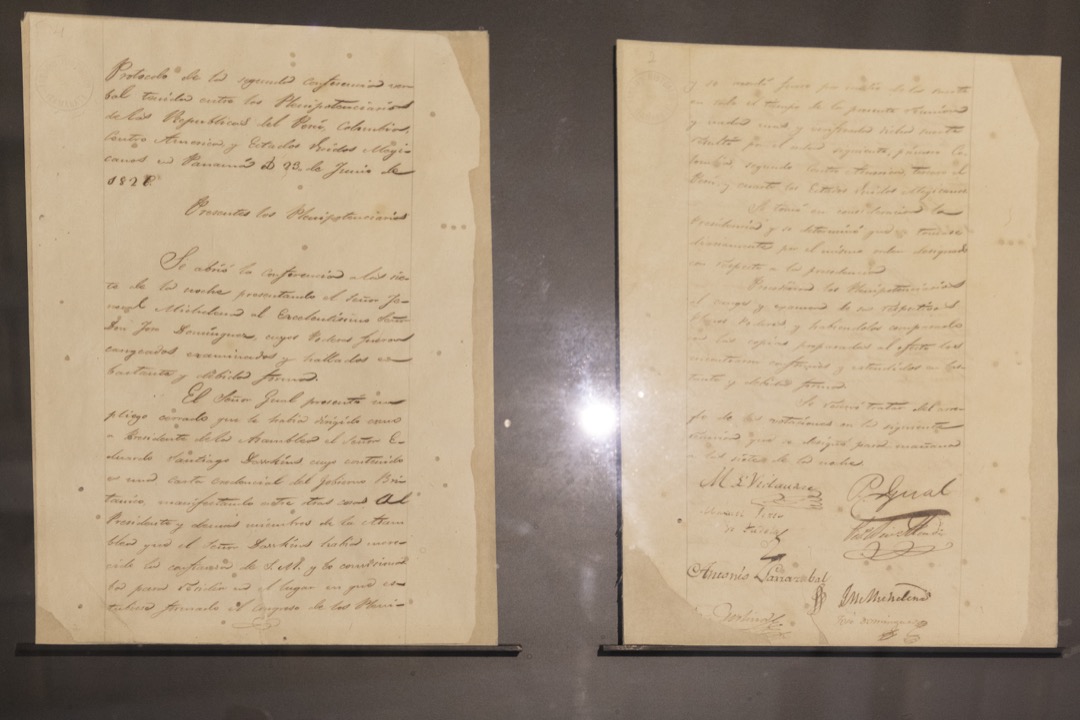 Protocolo de la segunda conferencia ver-
bal tenida entre los Plenipotenciarios
de las Republicas del Perú, Colombia,
Centro America y Estados Unidos Megi-
canos en Panamá á 23 de Junio de
Presentes los Plenipotenciarios
Se abrió la conferencia a las sie-
te de la noche presentando el Señor Je-
neral Michelena al Excelentísimo Señor
Don José Dominguez, cuyos Poderes fueron
cangeados examinados y hallados en
bastante y debida forma.
El Señor Gual presentó un
pliego cerrado que le habia dirigido como
a Presidente de la Asamblea el Señor E-
duardo Santiago Dawkins cuyo contenido
es una carta credencial del Gobierno Bri-
tanico, manifestando entre otras cosas Al
Presidente y demas miembros de la Asam-
blea que el Señor Dawkins habia mere-
cido la confianza de S.M. y lo
ba para residir en el lugar en que es-
tubiese formado el Congreso de los Pleni-
y se
en solo el tiempo de la presente reunion
y nada mas, y
por el orden siguiente, primero Co-
lombia, segundo Centro America, tercero el
Perú y cuarto los Estados Unidos Megicanos
Se tomó en consideracion la
Presidencia y se determinó que
diariamente por el mismo orden designado
con respecto a la precedencia
Procedieron los Plenipotenciarios
al cange y examen de sus respectivos
Plenos Poderes, y habiendolos comparado
con las copias preparadas al efecto los
encontraron conformes y estendidos en bas-
tante y debida forma.
en la siguiente
reunion que se designó para mañana
a las siete de la noche.
M. L. Vidaurre P. Gual
Antonio Larrazabal J. M. Michelena
José Dominguez